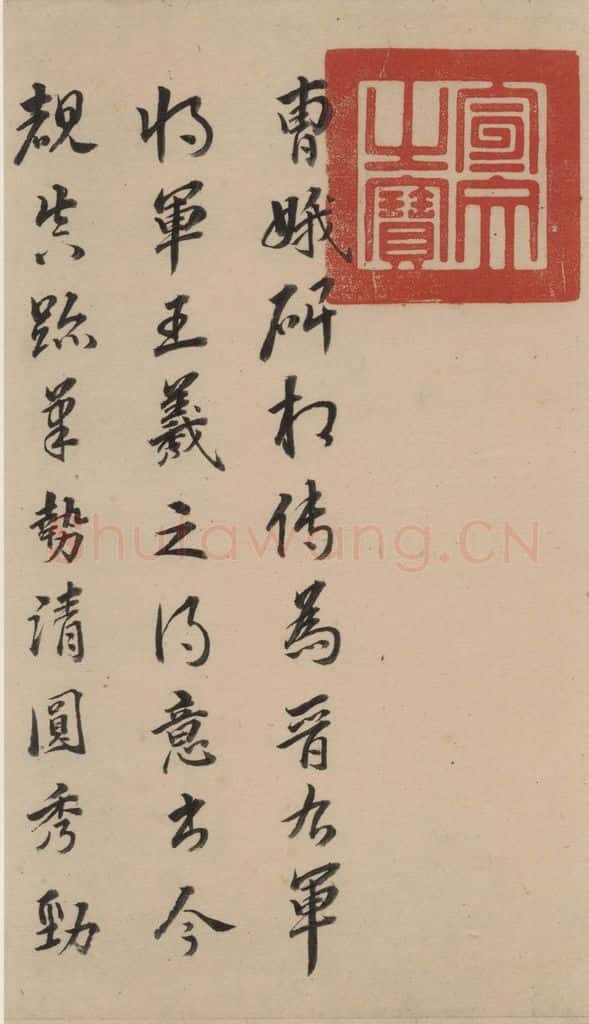 宣文之寶
曹娥碑相傳為晉右軍
將軍王羲之得意書今
覩真跡筆勢清圓秀勁
shufawang.CN